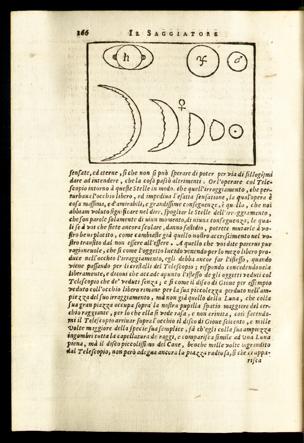 266 IL SAGGIATORE
♄ ♃ ♂
♀
sensate, ed eterne, sì che non si può sperare di poter per via di sillogismi
dare ad intendere, che la cosa passi altramente. Or l'operare col Tele-
scopio intorno à queste Stelle in modo che quell'irraggiamento, che per-
turbava l'occhio libero, ed impediva l'esatta sensazione, la qual'opera è
cosa massima, e d'ammirabile, e grandissime conseguenze, è quello, che noi
abbiam voluto significare nel dire, spogliar le Stelle dell'irraggiamento,
che son parole solamente di niun momento, di niuna conseguenza, le qua-
li se à voi che siete ancora scolare, danno fastidio, potrete mutarle à vo-
stro beneplacito, come cambiaste già quello nostro accrescimento nel vo-
stro transito dal non essere all'essere. A quello che voi dite parervi pur
ragionevole, che sì come l'oggetto lucido venendo per lo mezo libero pro-
duce nell'occhio l'irraggiamento, egli debba ancor far l'istesso, quando
viene passando per i cristalli del Telescopio; rispondo concedendovelo
liberamente, e dicovi che accade appunto l'istesso de gli oggetti veduti col
Telescopio che de' veduti senza; e sì come il disco di Giove per essempio
veduto coll'occhio libero rimane per la sua piccolezza perduto nell'am-
piezza del suo irraggiamento, ma non già quello della Luna, che colla
sua gran piazza occupa sopra la nostra pupilla spazio maggiore del cer-
chio raggiante, per lo che ella si vede rasa, e non crinita, così facendo-
mi il Telescopio arrivar sopra l'occhio il disco di Giove seicento, e mille
volte maggiore della specie sua semplice, fà ch'egli colla sua ampiezza
ingombri tutta la capellatura de' raggi, e comparisca simile ad una Luna
piena, ma il disco piccolissimo del Cane, benche mille volte ingrandito
dal Telescopio, non però adegua ancora la piazza radiosa, sì che ci appa-
risca